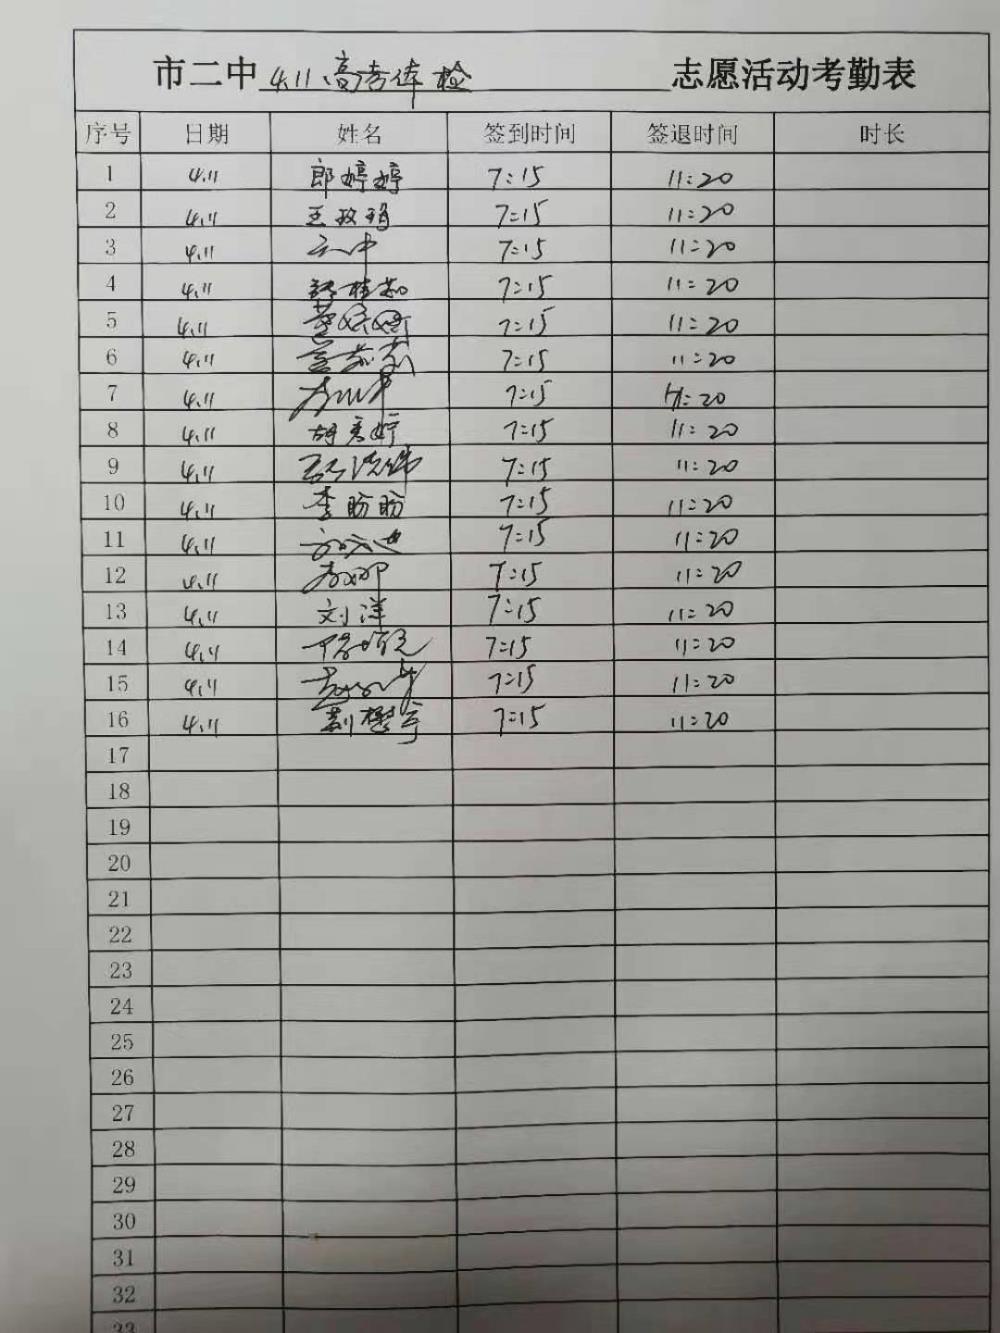 市二中 4.11.高考体检 志愿活动考勤表
序号 日期 姓名 签到时间 签退时间 时长
1 4.11 郎婷婷 7:15 11:20
2 4.11 王玫 7:15 11:20
3 4.11 7:15 11:20
4 4.11 7:15 11:20
5 4.11 7:15 11:20
6 4.11 7:15 11:20
7 4.11 7:15 11:20
8 4.11 胡彦婷 7:15 11:20
9 4.11 7:15 11:20
10 4.11 李盼盼 7:15 11:20
11 4.11 7:15 11:20
12 4.11 李娜 7:15 11:20
13 4.11 刘洋 7:15 11:20
14 4.11 7:15 11:20
15 4.11 7:15 11:20
16 4.11 7:15 11:20
17
18
19
20
21
22
23
24
25
26
27
28
29
30
31
32
33